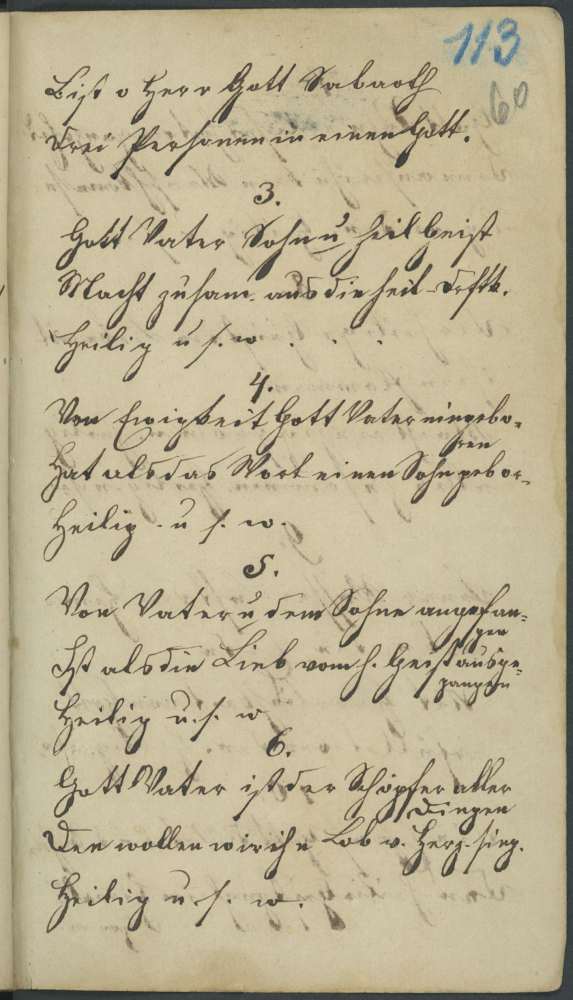 113
60
Bist o Herr Gott Sabaoth
Drei Personen in einen Gott.
3.
Gott Vater Sohn u heil Geist
Macht zusam. aus die heil
Heilig u s. w . . .
4.
Von Ewigkeit Gott Vater eingebo=
ren
Hat als das Wort einen Sohn gebor.
Heilig u s. w.
5.
Von Vater u dem Sohne angefan=
gen
Ist als die Lieb vom h. Geist ausge=
gangen
Heilig u. s. w
6.
Gott Vater ist der Schöpfer aller
Dingen
Den wollen wir ihn Lob v. Herz. sing.
Heilig u. s. w.